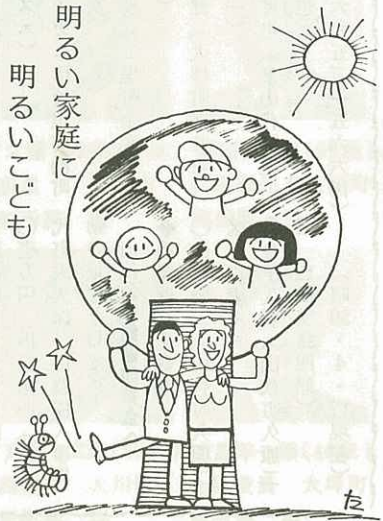 明るい家庭に
明るいこども
た